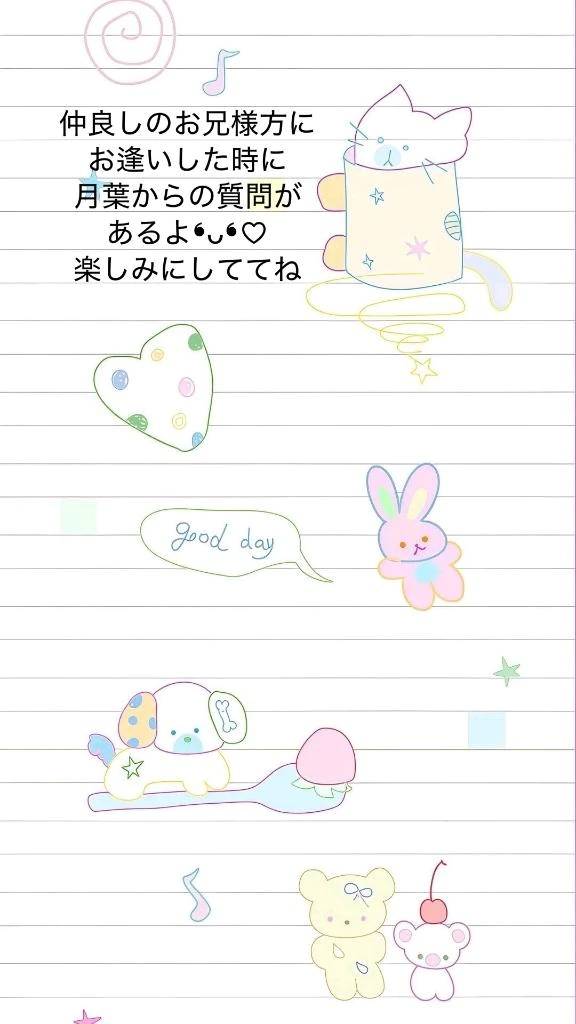 仲良しのお兄様方に
お逢いした時に
月葉からの質問が
あるよ❛ᴗ❛♡
楽しみにしててね
good day